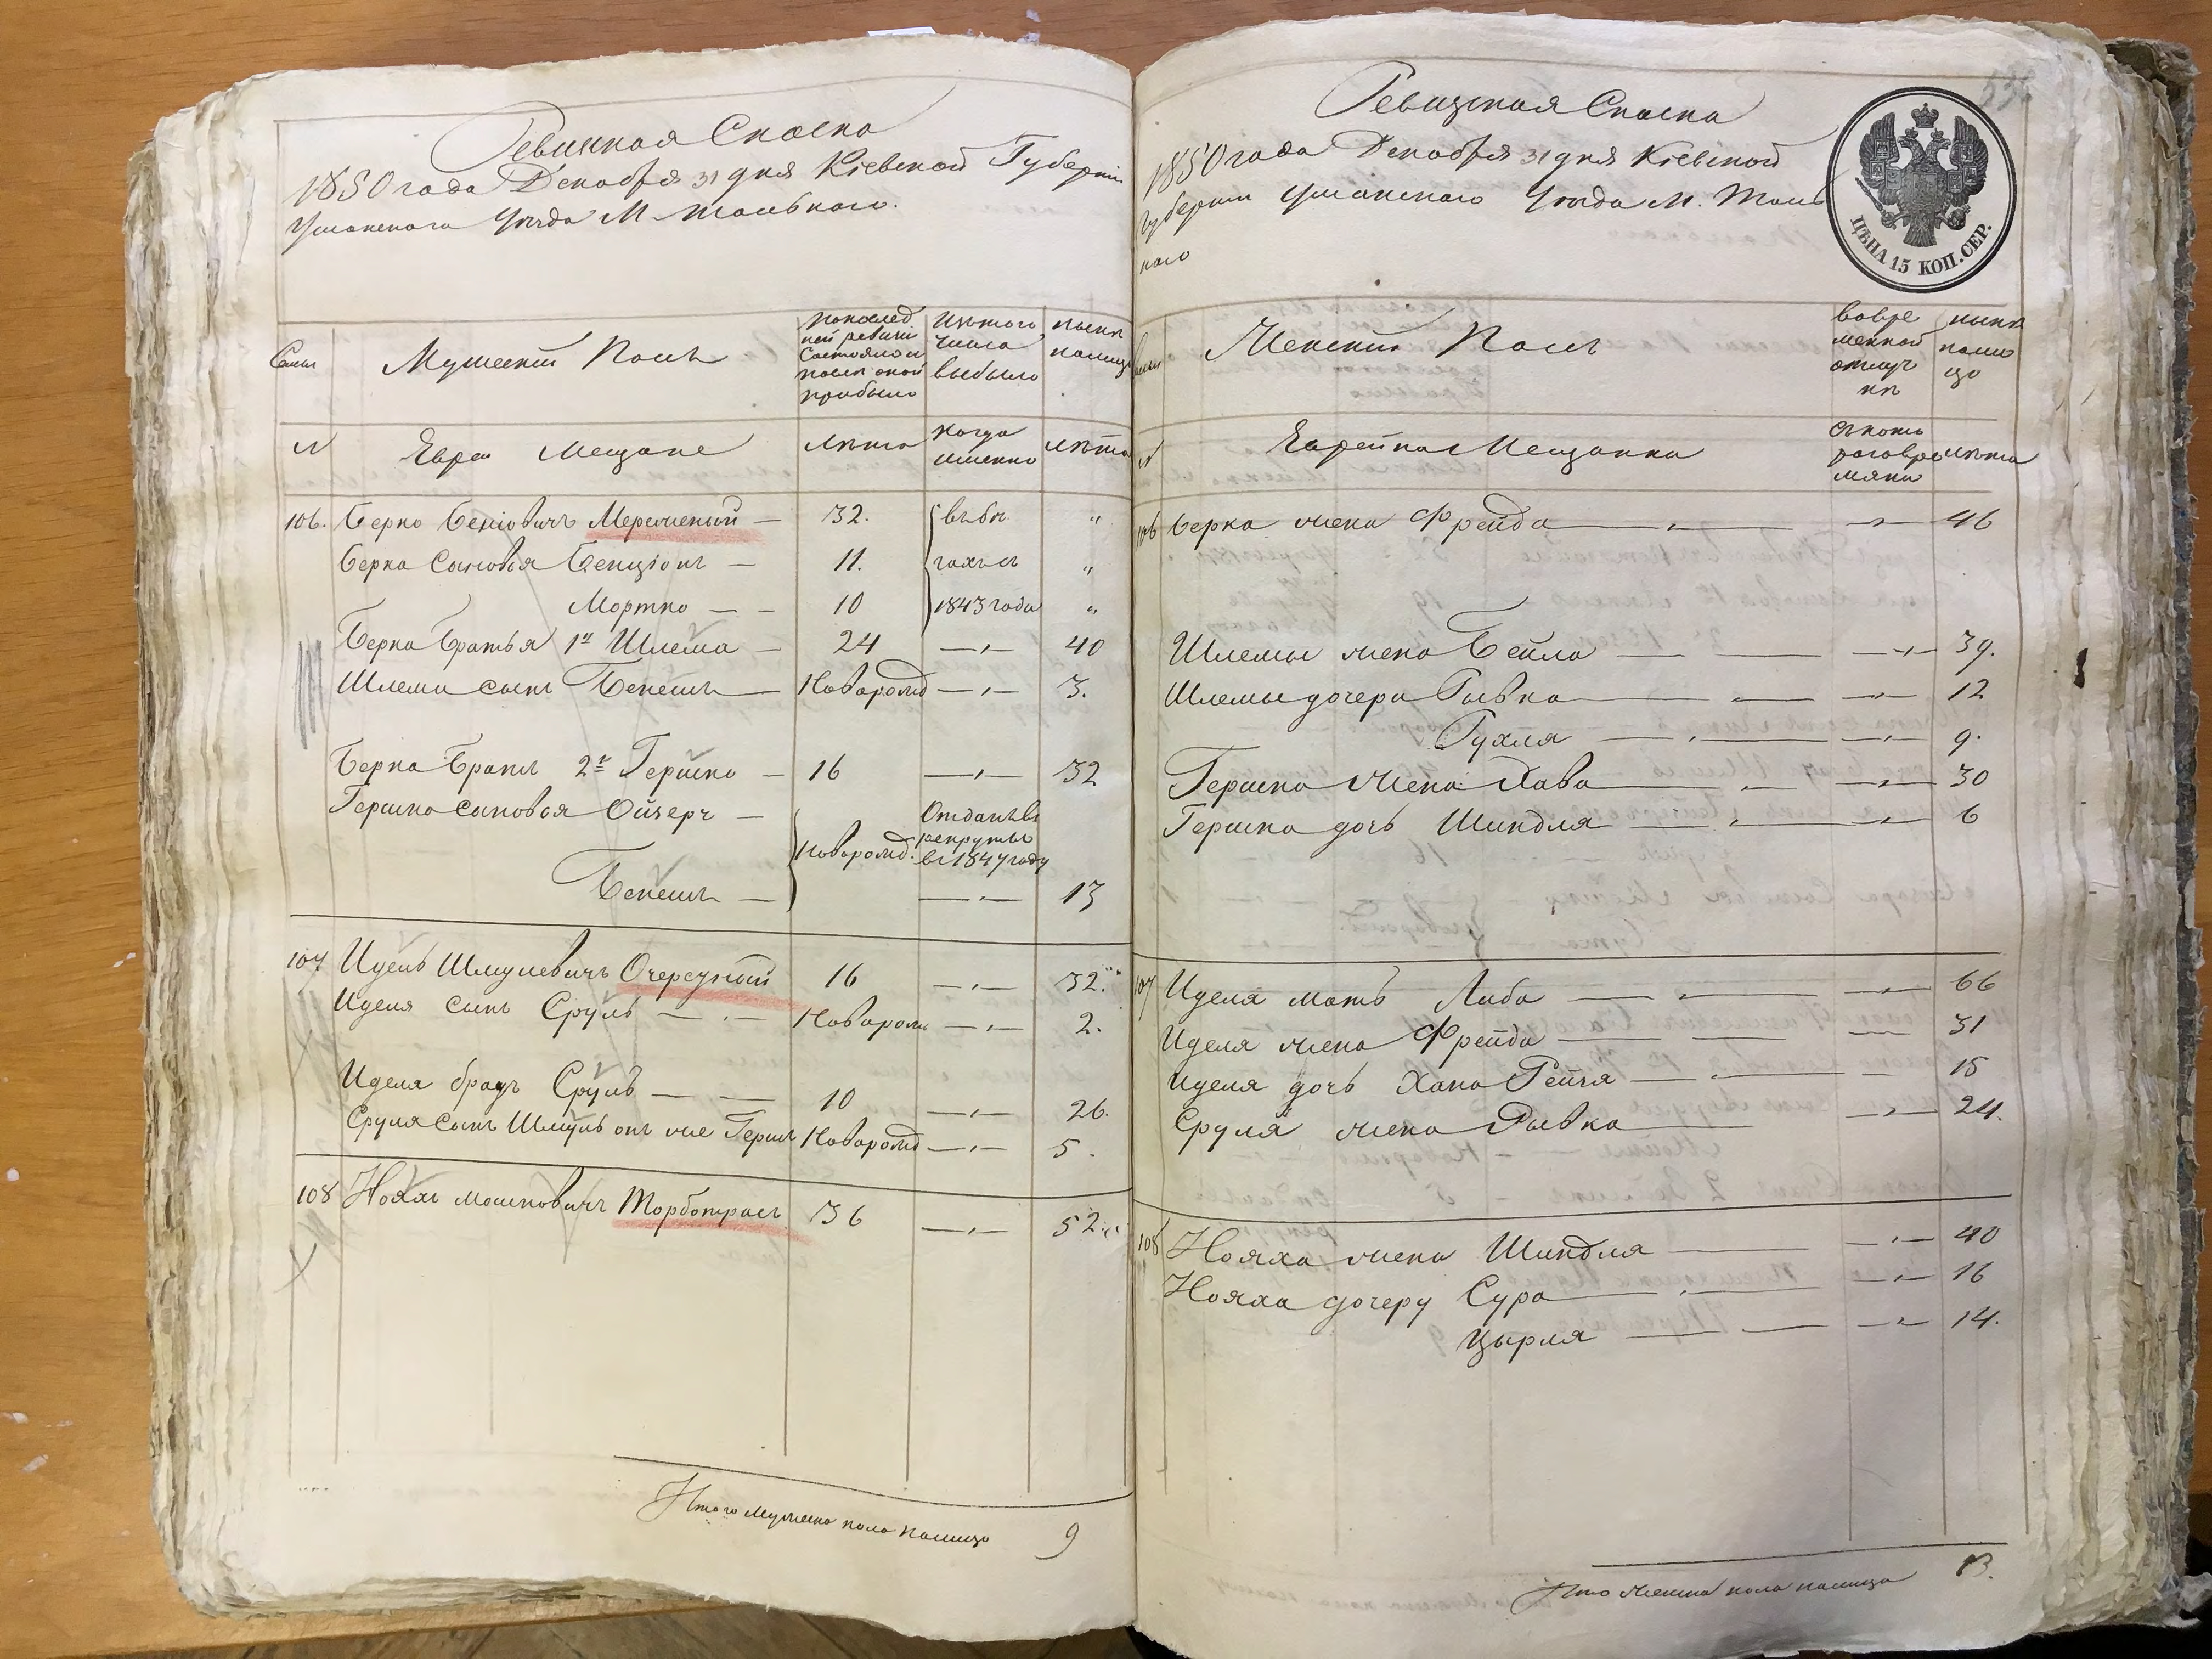 Ревизкая Сказка
1850 года Декабря 31 дня Кіевской Губерніи
Уманского Уезда М. Тального.
Мужеский Полъ
последней ревизіи состояло и после оной прибыло
Изъ того числа выбыло
ныне на лицо
№
Евреи Мещане
лета
когда именно
лета
106. Берко Бенціовичъ 32. въ бегахъ съ 1843 года "
Берка Сыновья Бенціонъ — 11. "
Мортко — — 10 "
Берка Братья 1й Шлема — 24 — " — 40
Шлемы сынъ Бениш — Новорожд — " — 3.
Берка Братъ 2й Гершко — 16 — " — 32
Гершка сыновья Ойзеръ — Новорожд. Отданъ въ рекруты въ 1847 году
Бениш — — " — 13
107 Идель Шмулевичъ Очередный 16 — " — 32.
Иделя сынъ Сруль — " — Новорож — " — 2.
Иделя братъ Сруль — — 10 — " — 26.
Сруля сынъ Шмуль онъ же Гершъ Новорожд — " — 5.
108 Нояхъ Мошковичъ Торботрясъ 36 — " — 52.
Итого мужеска пола налицо 9
Ревизская Сказка
1850 года Декабря 31 дня Кіевской
Губерніи Уманского Уезда М. Таль
ного
ЦѢНА 15 КОП. СЕР.
Женский Полъ
во временной отлучке
ныне на лицо
№
Еврейки Мещанки
съ которого времени
лета
106 Берка жена Фрейда — " — 46
Шлемы жена Бейла — — " — 39.
Шлемы дочери Рывка — — " — 12
Рухля — " — " — 9.
Гершка жена Хава — " — " — 30
Гершка дочь Шиндля — " — " — 6
107 Иделя мать Либа — " — " — 66
Иделя жена Фрейда — — — 31
Иделя дочь Хана Рейзя — " — 15
Сруля жена Рывка — " — 24.
108 Нояха жена Шиндля — " — 40
Нояха дочери Сура — " — " — 16
Цырля — — " — 14.
Итого женска пола налицо 13.